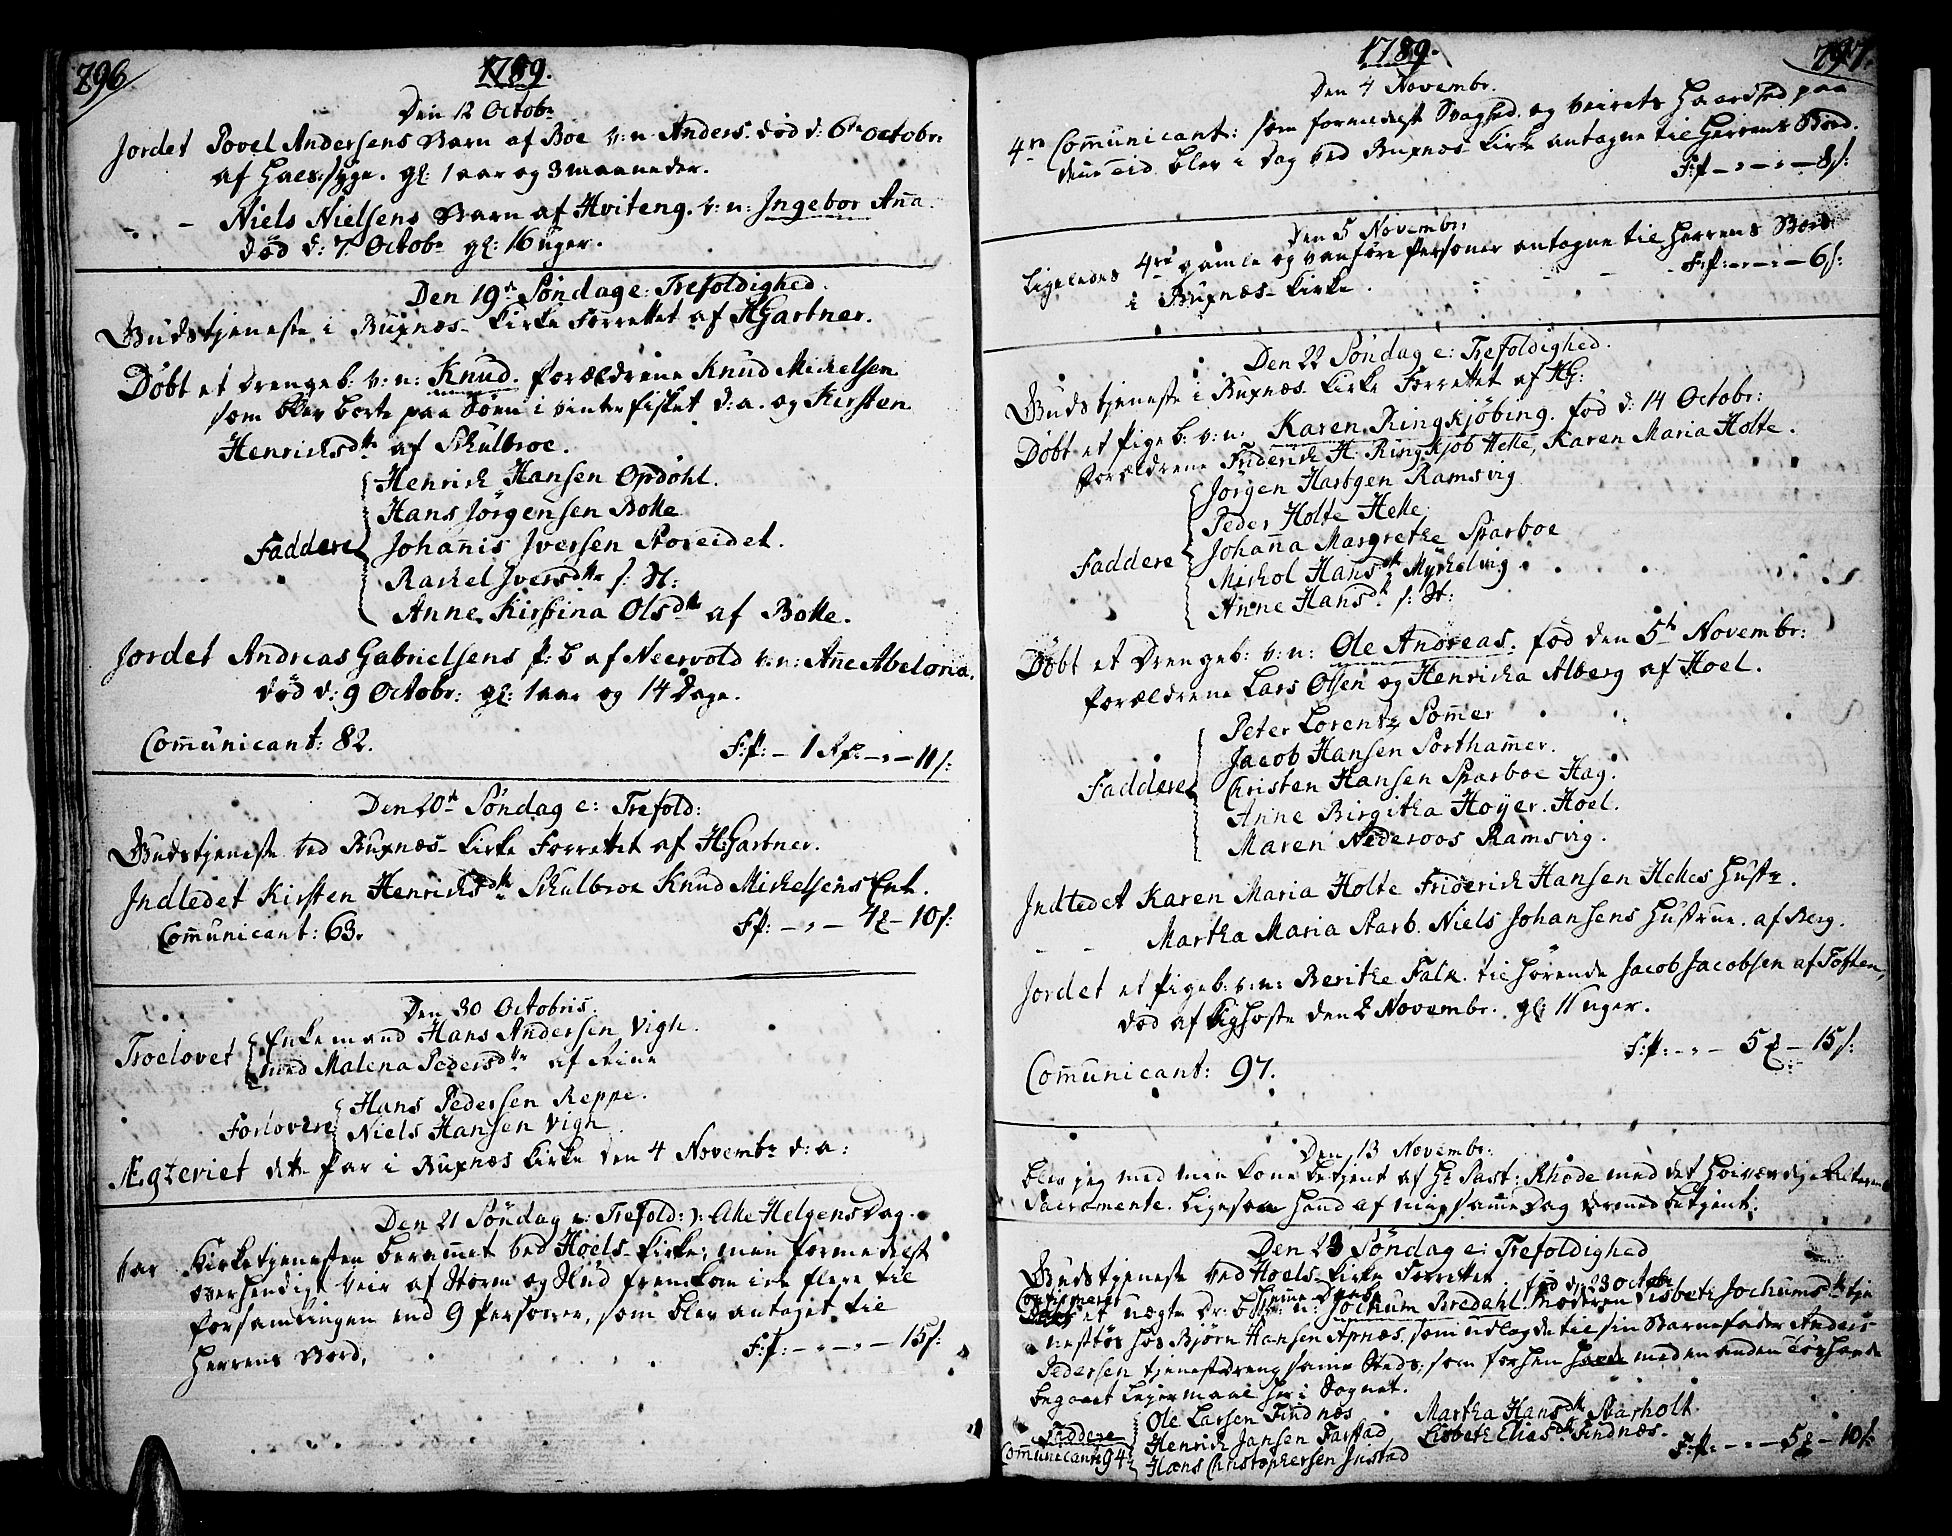 296
1789.
Den 12 Octobr
Jordet Povel Andersens Barn af Boe v: n: Anders. død d: 6te Octobr:
af Halssyge. gl: 1 aar og 3 maaneder.
- - Niels Nielsens Barn af Hviteng. v: n: Ingebor Aña.
død d: 7. Octobr gl: 16 uger.
Den 19de Søndag e: Trefoldighed.
Gudstjeneste i Buxnæs- Kirke Forrettet af H: Gartner.
Døbt et Drengeb: v: n: Knud. Forældrene Knud Mickelsen
som blev borte paa Søen i vinterfisket d: a. og Kirsten
Henrichsdtr af Skulbroe.
Henrich Hansen Opdøhl.
Hans Jörgensen Bolle
Faddere Johañis Iversen Storeidet.
Rackel Iversdtr s: St:
Anne Kirstina Olsdtr af Bolle.
Jordet Andreas Gabrielsens p: b af Neervold v: n: Añe Abelona.
død d: 9 Octobr: gl: 1 aar og 14 Dage.
Com̄unicant: 82.
F:p: - 1 Rp: - „ - 11 s:
Den 20de Søndag e: Trefold:
Gudstjeneste ved Buxnæs- Kirke Forrettet af H: Gartner.
Indledet Kirsten Henrichsdtr Skulbroe Knud Mickelsens Enk.
Com̄unicant: 63.
F:p: - „ - 4 - 10 s:
Den 30 Octobris.
Troelovet Enkemand Hans Andersen Vigh.
med Malena Pedersdtr af Rine
Hans Pedersen Reppe.
Forlovere Niels Hansen Vigh
Ægteviet dette Par i Buxnæs Kirke den 4 Novembr d: a:
Den 21 Søndag e: Trefold: ): Alle Helgens Dag.
var Kirketjenesten beram̄et ved Hoels- Kirke; men formedelst
overhendigt Veir af Storm og Flud fremkom icke flere til
forsamlingen end 9 Personer, som blev antaget til
Herrens Bord,
F:p: - „ - „ - 15 s:
297.
1789.
Den 4 Novembr.
4re Com̄unicant: som formedelst Svaghed og Veirets Haardhed paa
denne Tid blev i Dag ved Buxnæs- Kirke antagne til Herrens Bord.
F:p - „ - „ - 8 s:
Den 5 Novembr:
Ligeledes 4re gamle og vanføre Personer antagne til Herrens Bord
i Buxnæs- Kirke.
F:p: - „ - „ - 6 s:
Den 22 Søndag e: Trefoldighed.
Gudstjeneste i Buxnæs- Kirke Forrettet af HG:
Døbt et Pigeb: v: n: Karen Ringkjöbing. fød d: 14 Octobr:
Forældrene Friderich H: Ringkjöb Helle, Karen Maria Holte.
Jörgen Hartgen Ramsvig
Peder Holte Helle
Faddere Johaña Margrethe Sparboe
Mickol Hansdtr Myckelvig
Anne Hansdtr s: St:
Døbt et Drengeb: v: n: Ole Andreas. fød den 5te Novembr:
Forældrene Lars Olsen og Henricka Alberg af Hoel.
Peter Lorentz Som̄er
Jacob Hansen Sortham̄er.
Faddere Christen Hansen Sparboe Hag.
Anne Birgitha Hoÿer. Hoel.
Maren Nideroos Ramsvig.
Indledet Karen Maria Holte Friderich Hansen Helles Hustr.
- - Martha Maria Starb. Niels Johansens Hustrue. af Berg.
Jordet et Pigeb: v: n: Berithe Falk. tilhørende Jacob Jacobsen af Toften,
død af Kighoste den 2 Novembr. gl: 11 uger.
F:p: - „ - 5 - 15 s:
Com̄unicant: 97.
Den 13 Novembr:
blev jeg med min Kone betjent af Hr Past: Rhode med det Høiværdige Alterens
Sacramente. Ligesaa Hand af mig sam̄e Dag dermed betjent.
Den 23 Søndag e: Trefoldighed
Gudstjeneste ved Hoels- Kirke Forrettet. fød d: 23 Octobr
Confirmeret hjem̄e Døbt
et uægte Dr: b: v: n: Jochum Bredahl. Moderen Lisbeth Jochumsdtr tje
nestøs hos Bjørn Hansen Apnæs, som udlagde til sin Barnefader Anders
Pedersen tjenestdreng sam̄e Steds, som forhen med en anden Tøs havde
begaaet Lejermaal her i Sognet.
Ole Larsen Findnæs Martha Hansdtr Starholt
Faddere Henrich Jansen Farstad Lisbeth Eliasdtr Findnæs.
Com̄unicant: 94 Hans Christophersen Inistad
F:p: - „ - 5 - 10 s: